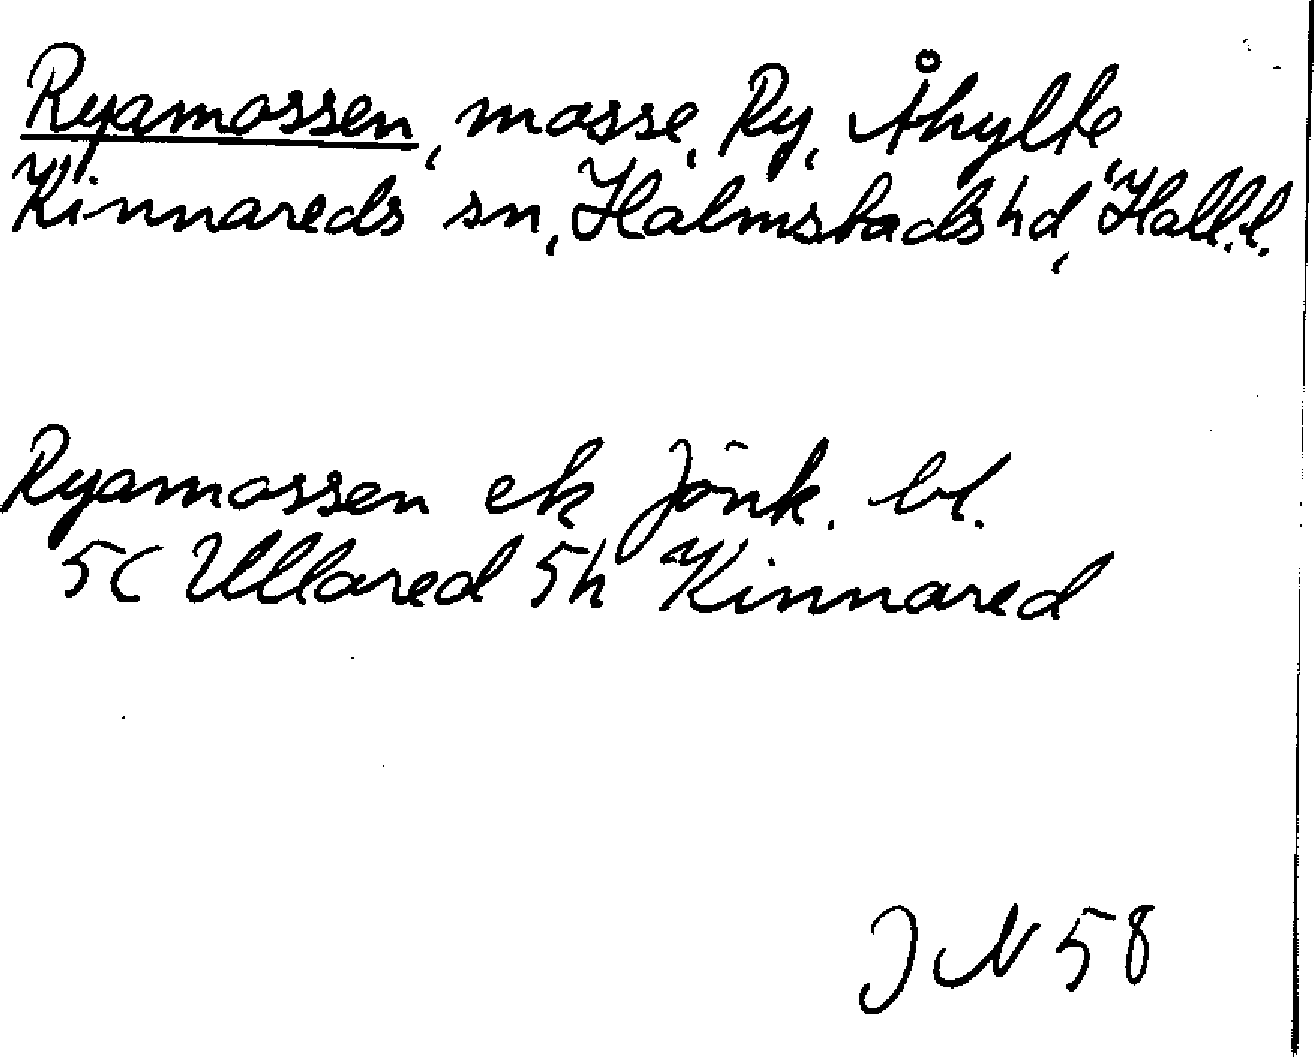 Ryamossen, mosse, Ry, Åhylte,
Kinnareds sn, Halmstads hd, Hall.l.
Ryamossen ek Jönk. bl.
5C Ullared 5h Kinnared
JN 58